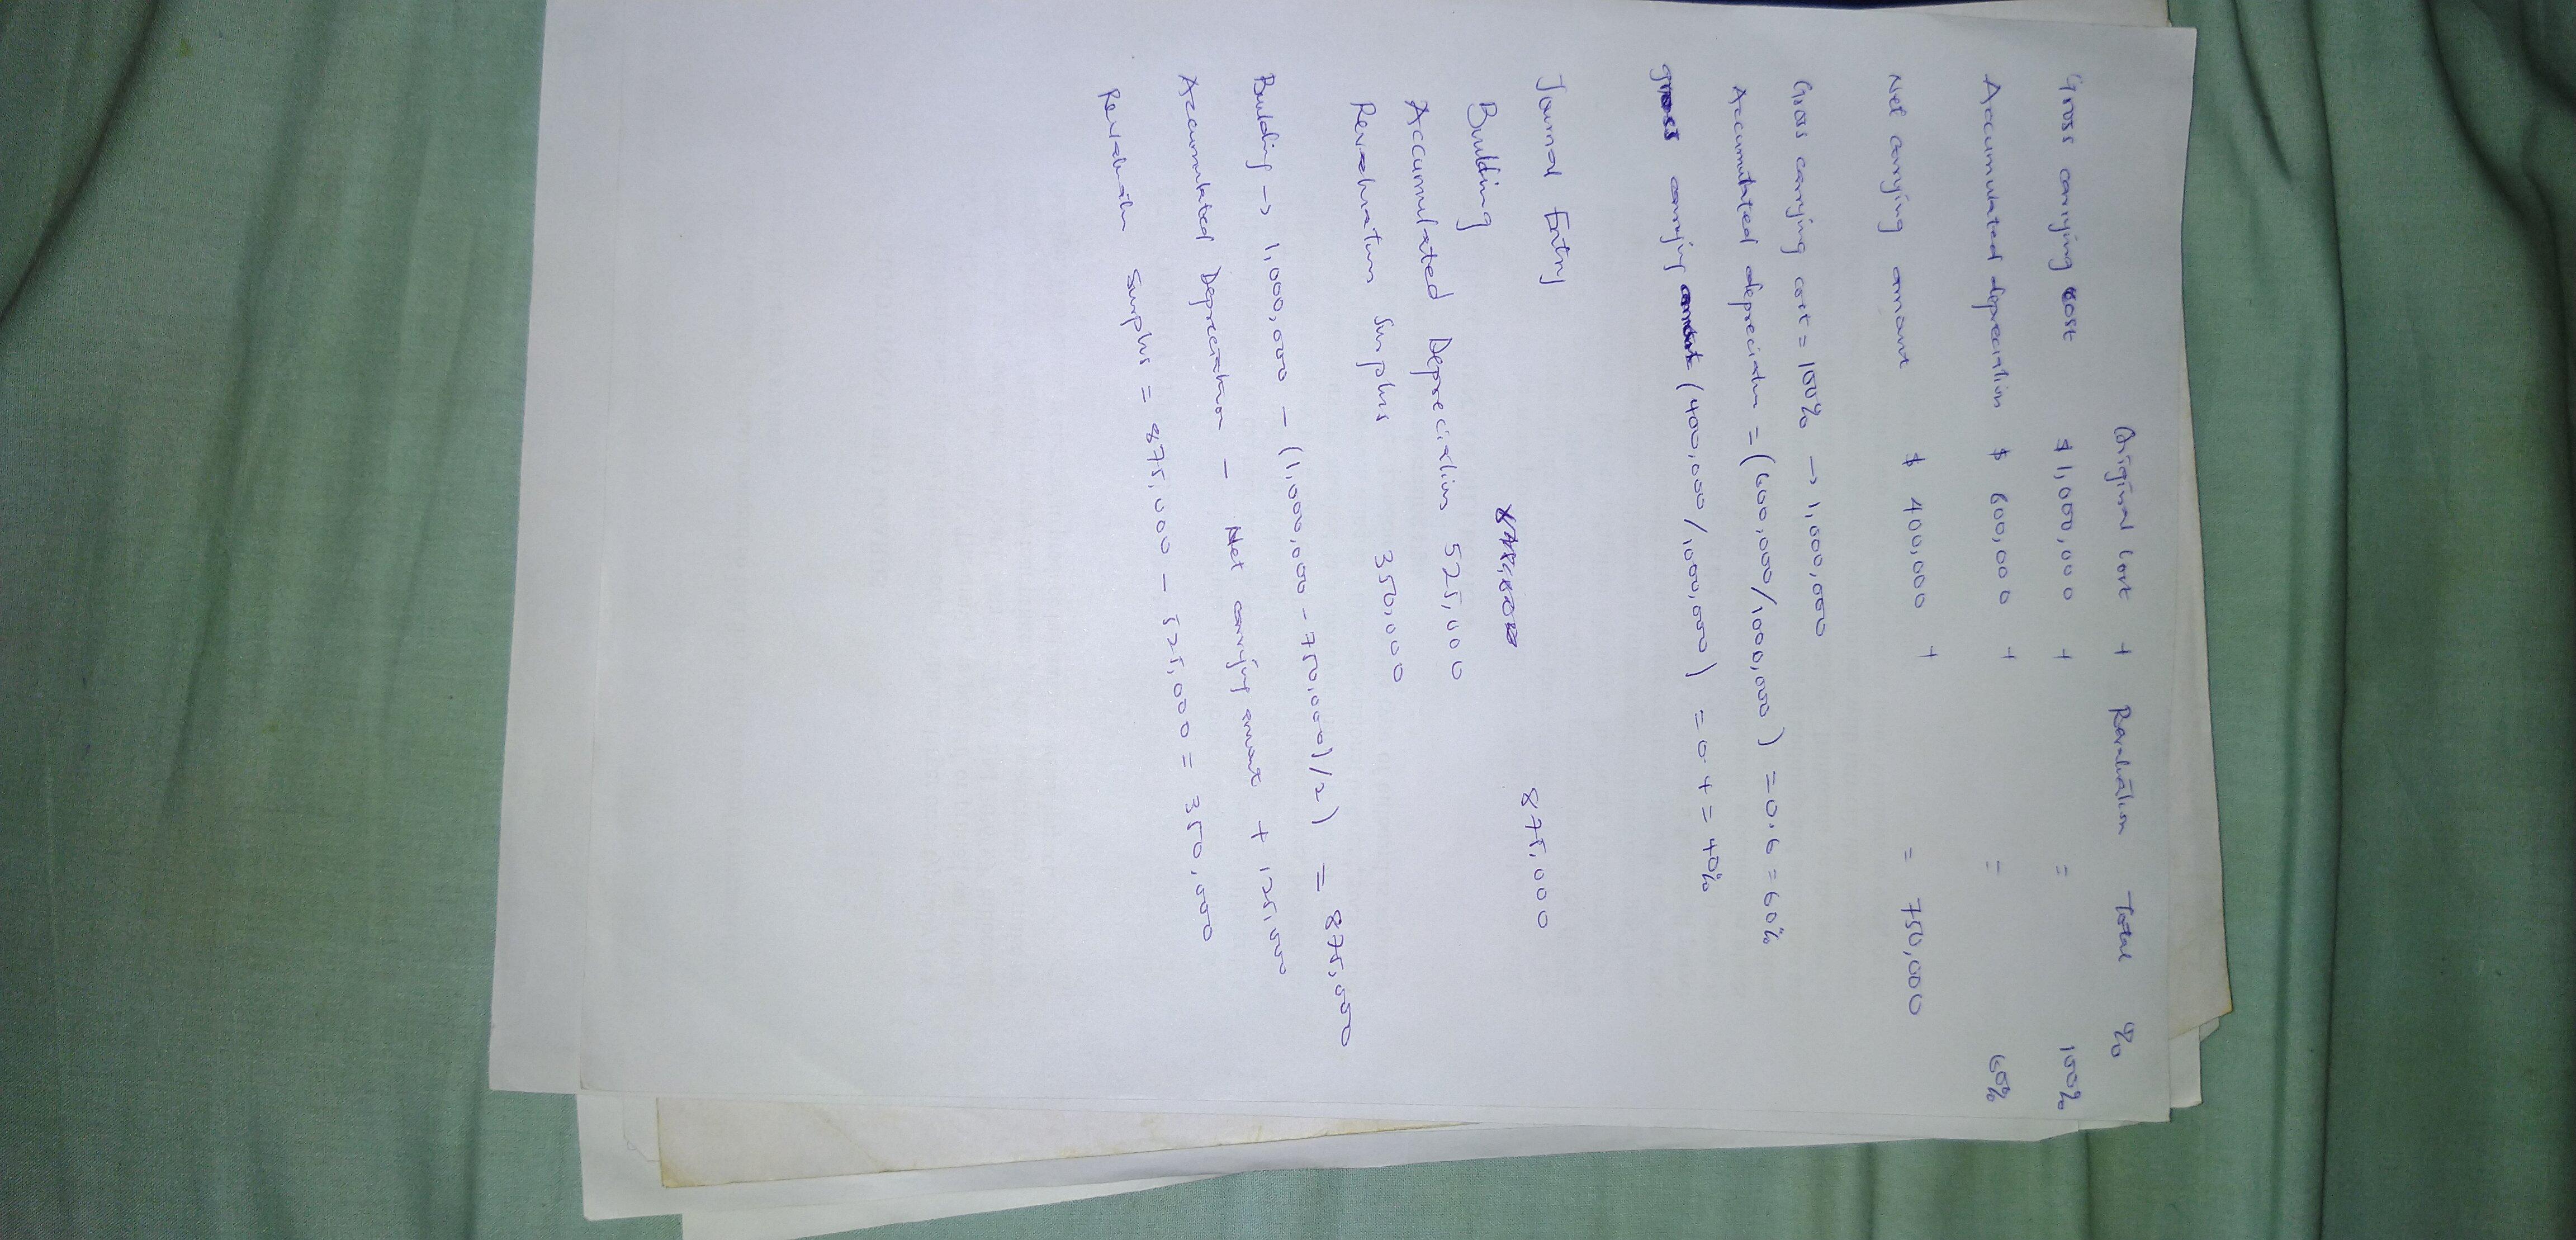 Original Cost + Revaluation Total %
Gross carrying cost $ 1,000,000 + = 100%
Accumulated depreciation $ 600,000 + = 60%
Net carrying amount $ 400,000 + = 750,000
Gross carrying cost = 100% → 1,000,000
Accumulated depreciation = (600,000/1000,000) = 0.6 = 60%
gross carrying amount (400,000/1000,000) = 0.4 = 40%
Journal Entry
Building 875,000
Accumulated Depreciation 525,000
Revaluation Surplus 350,000
Building → 1,0000,000 - (1,0000,000 - 750,000)/2) = 875,000
Accumulated Depreciation - Net carrying amount + 125,000
Revaluation Surplus = 875,000 - 525,000 = 350,000